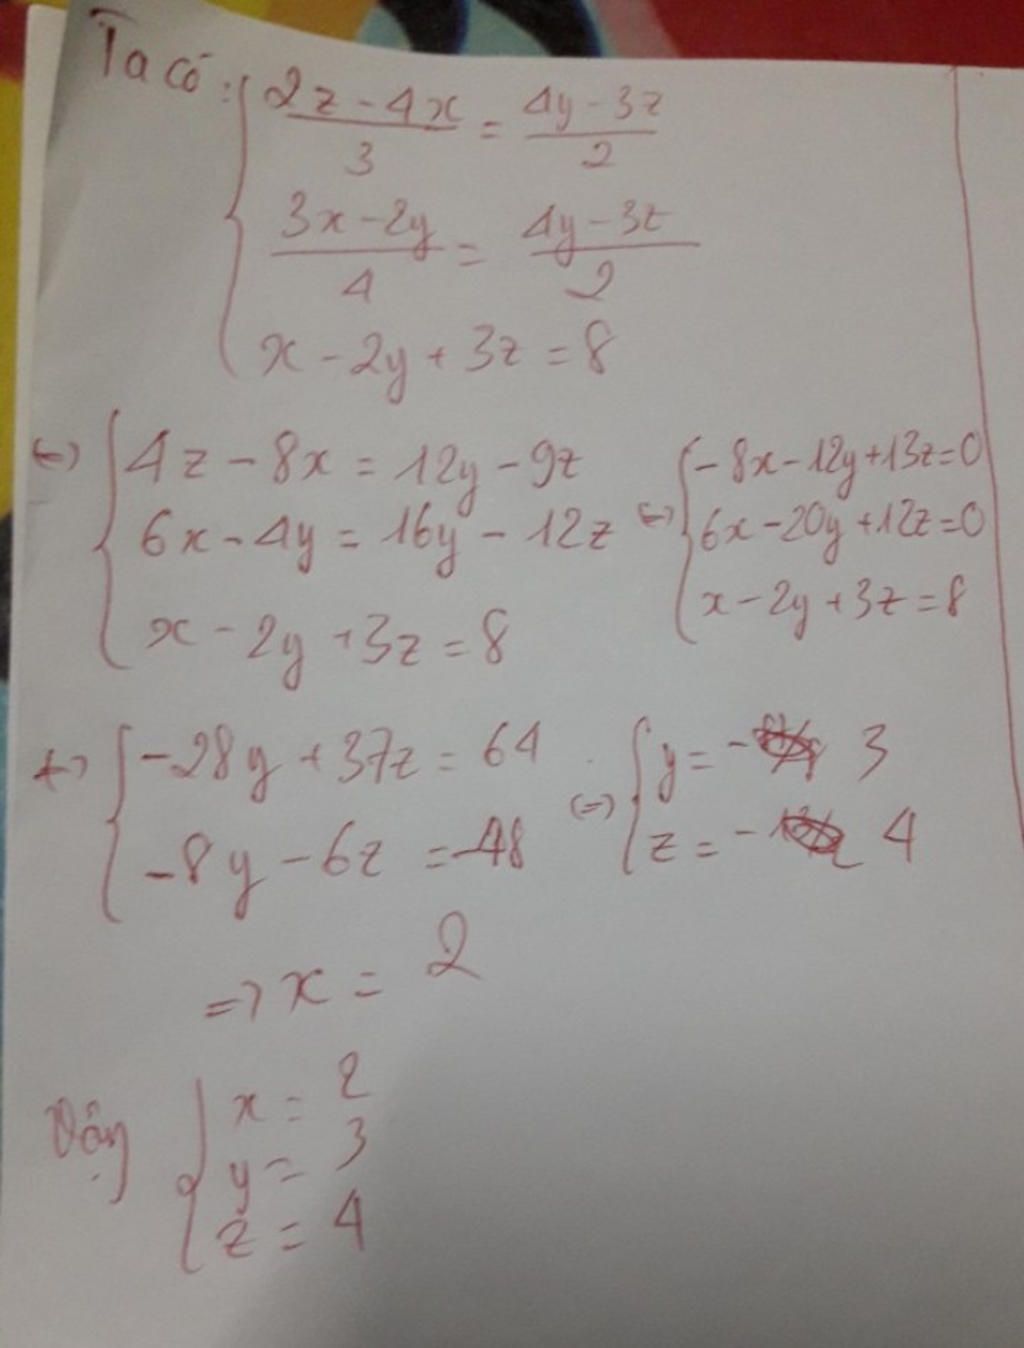 Ta có: { 2z - 4x / 3 = 4y - 3z / 2
3x - 2y / 4 = 4y - 3z / 2
x - 2y + 3z = 8
<=> { 4z - 8x = 12y - 9z
6x - 4y = 16y - 12z
x - 2y + 3z = 8
<=> { -8x - 12y + 13z = 0
6x - 20y + 12z = 0
x - 2y + 3z = 8
<=> { -28y + 37z = 64
-8y - 6z = -48
<=> { y = - 3
z = - 4
=> x = 2
Vậy { x = 2
y = 3
z = 4